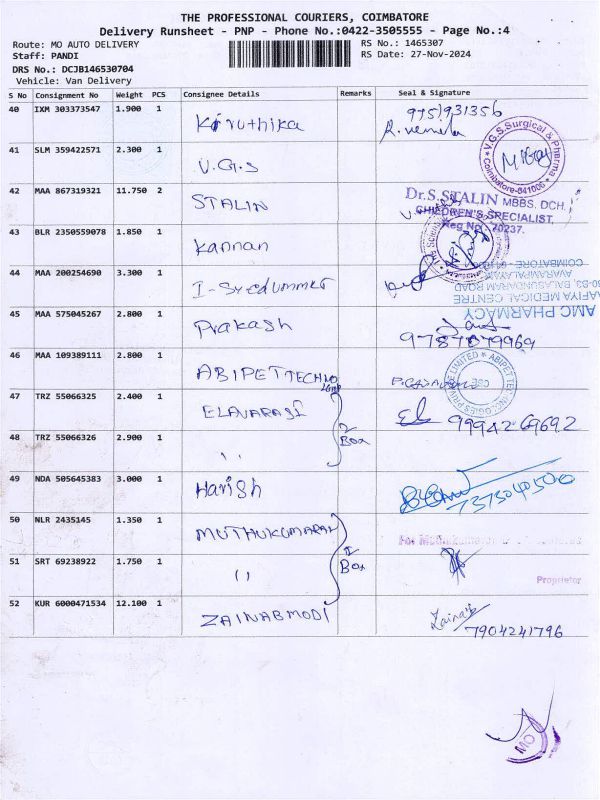 THE PROFESSIONAL COURIERS, COIMBATORE
Delivery Runsheet - PNP - Phone No.:0422-3505555 - Page No.:4
Route: MO AUTO DELIVERY
RS No.: 1465307
Staff: PANDI
RS Date: 27-Nov-2024
DRS No.: DCJB146530704
Vehicle: Van Delivery
S No Consignment No Weight PCS Consignee Details Remarks Seal & Signature
40 IXM 303373547 1.900 1 Kiruthika
9751931356
41 SLM 359422571 2.300 1 V.G.S
V.G.S.Surgical & Pharma
Coimbatore-641006
42 MAA 867319321 11.750 2 STALIN
Dr.S.STALIN MBBS, DCH,
CHILDREN'S SPECIALIST,
Reg No: 70237.
43 BLR 2350559078 1.850 1 Kannan
44 MAA 200254690 3.300 1 I-Syedummer
AMC PHARMACY
AAFIYA MEDICAL CENTRE
BALASUNDARAM ROAD
AVARAMPALAYAM
COIMBATORE
45 MAA 575045267 2.800 1 Prakash
9787879969
46 MAA 109389111 2.800 1 ABIPETTECHNO
CBE
47 TRZ 55066325 2.400 1 ELAVARASI
2 Box
99942 69692
48 TRZ 55066326 2.900 1 ,,
49 NDA 505645383 3.000 1 Harish
7373040500
50 NLR 2435145 1.350 1 MUTHUKUMARAN
2 Box
51 SRT 69238922 1.750 1 ,,
Proprietor
52 KUR 6000471534 12.100 1 ZAINABMODI
Zainab
7904241796
MO